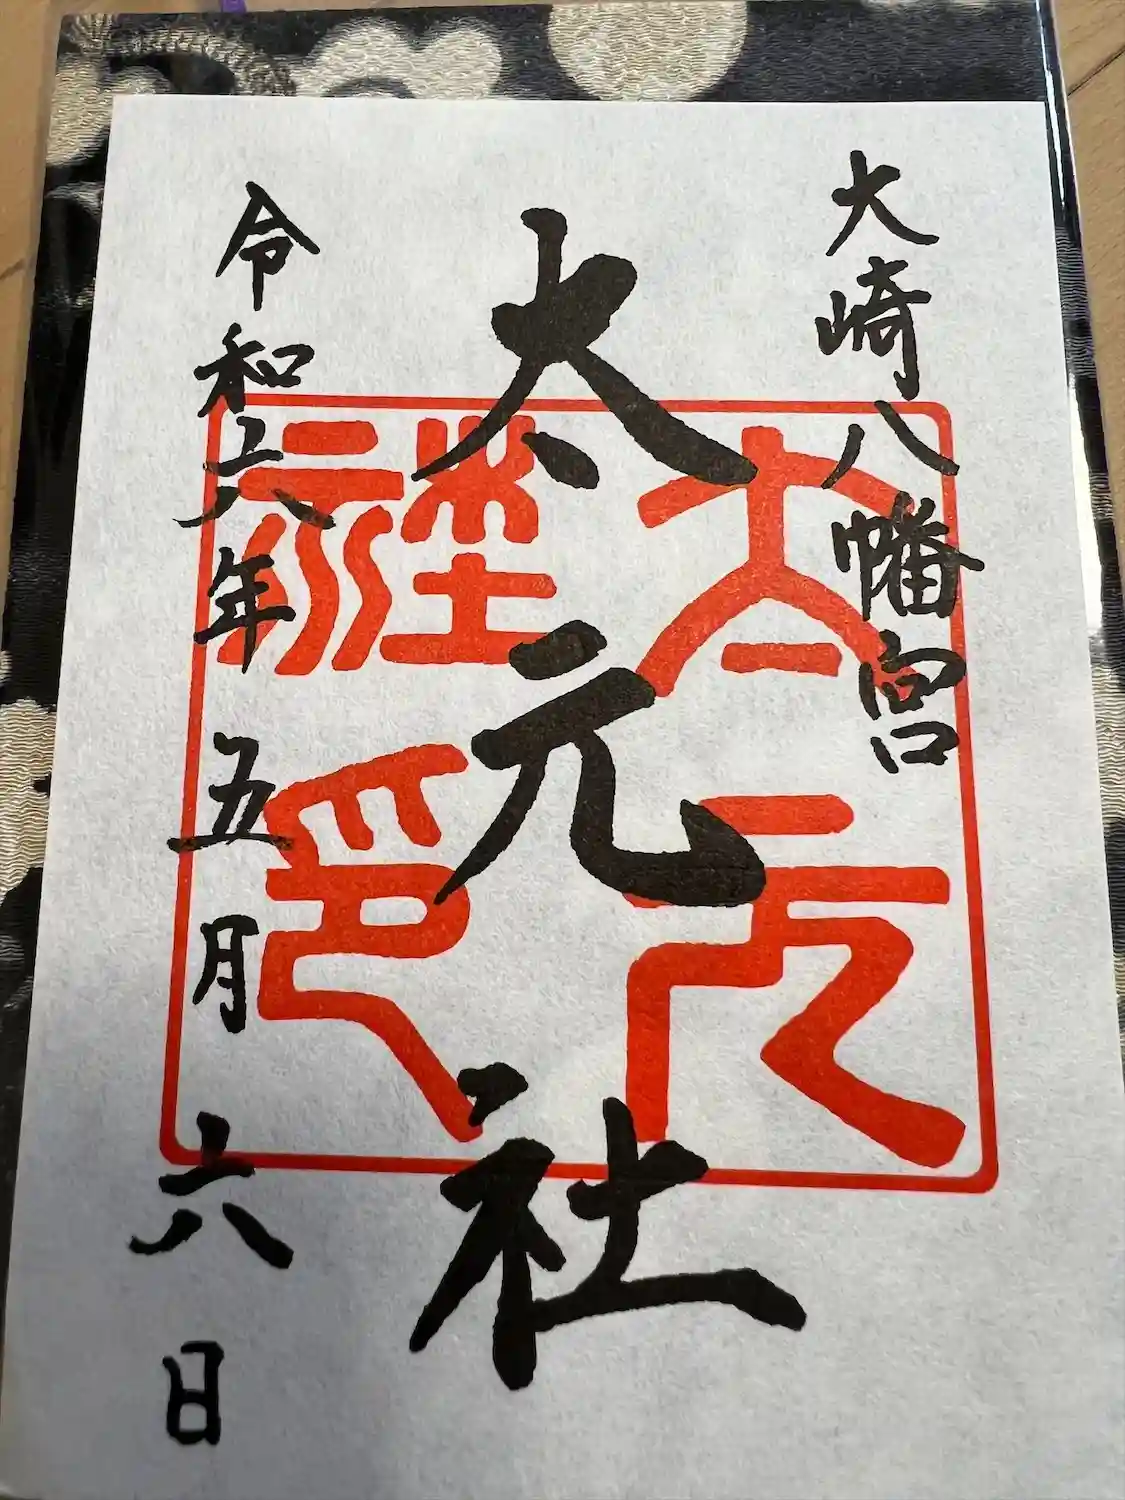 大崎八幡宮
太元社
太元社印
令和六年五月六日